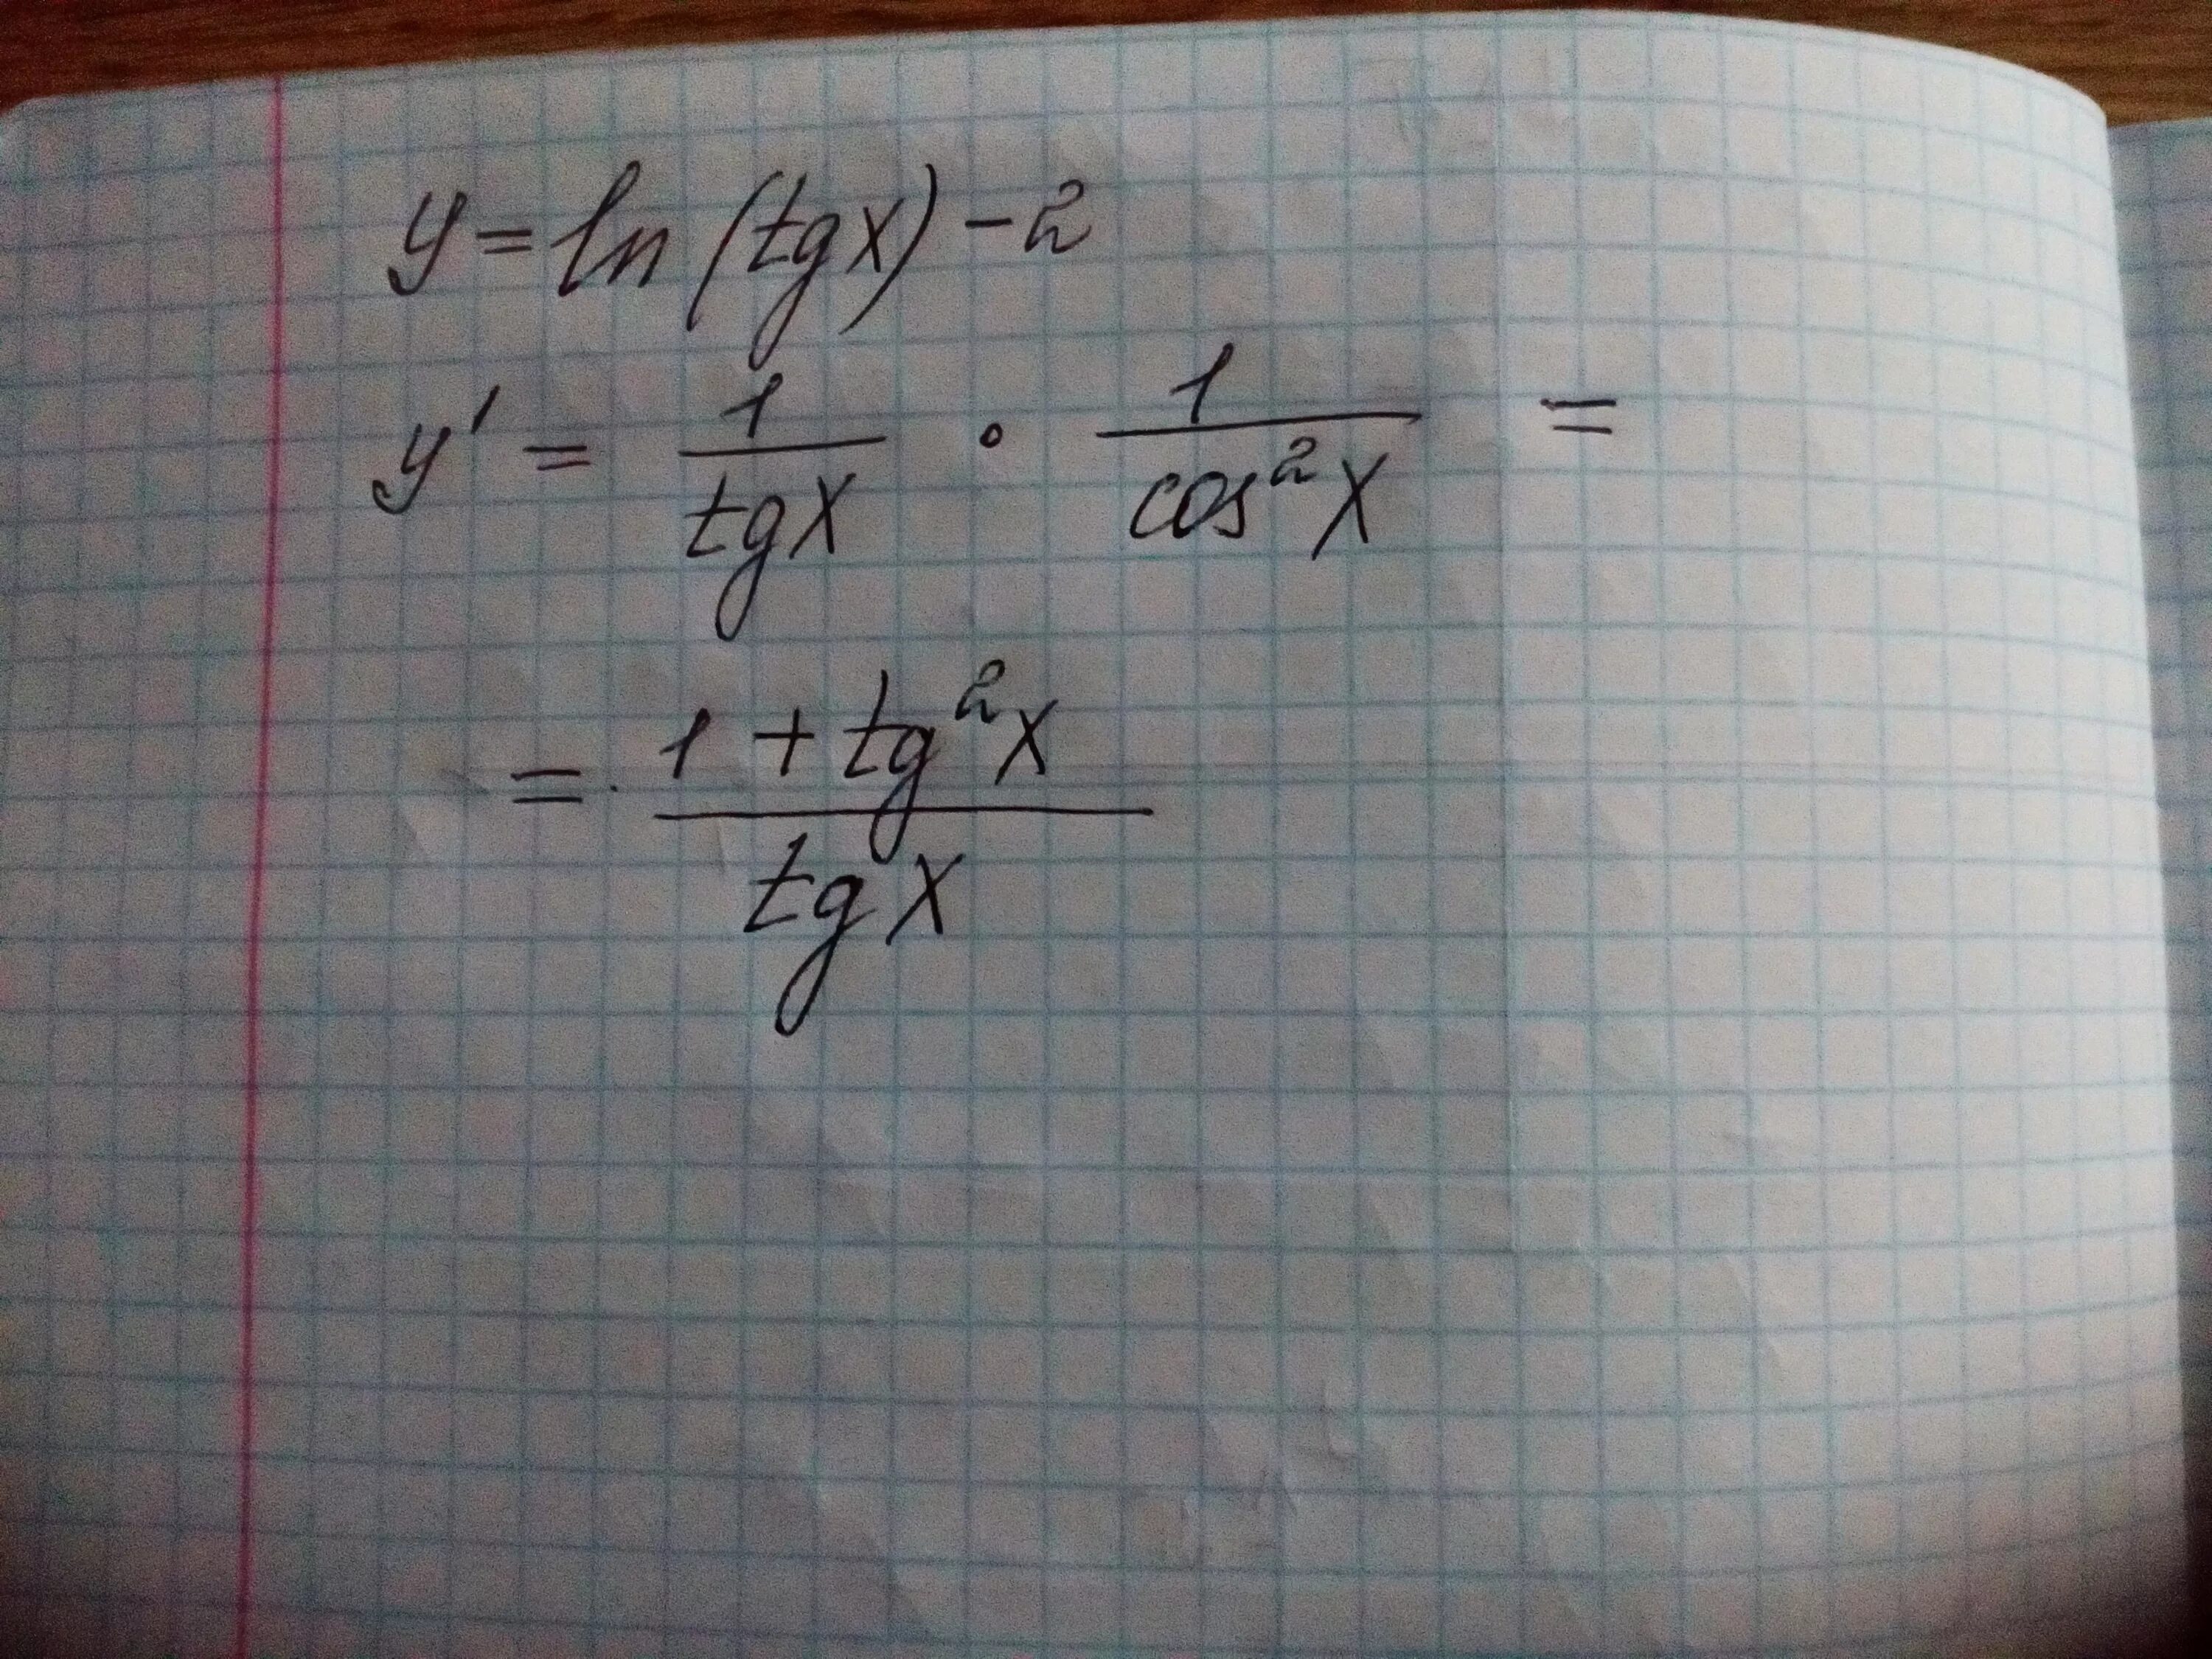 y = ln (tgx) - 2
y' = 1/tgx · 1/cos²x =
= 1 + tg²x / tgx